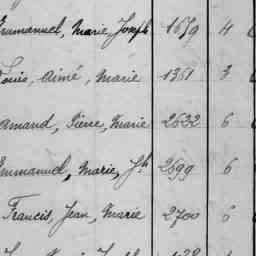 Emmanuel, Marie Joseph 1659 4
Louis, Aimé, Marie 1351 3
Amand, Pierre, Marie 2632 6
Emmanuel, Marie, Jh 2699 6
Francis, Jean, Marie 2700 6